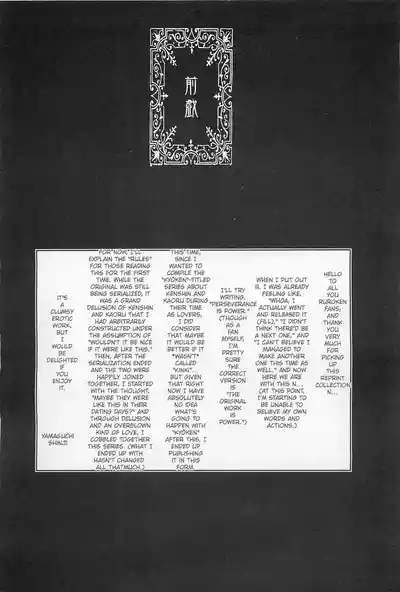 前戯
HELLO
TO ALL
YOU
RUROKEN
FANS,
AND
THANK
YOU
VERY
MUCH
FOR
PICKING
UP
THIS
REPRINT
COLLECTION
N...
WHEN I PUT OUT
III. I WAS ALREADY
FEELING LIKE,
"WHOA, I
ACTUALLY WENT
AND RELEASED IT
(FILL)," "I DIDN'T
THINK THERE'D BE
A NEXT ONE," AND
"I CAN'T BELIEVE I
MANAGED TO
MAKE ANOTHER
ONE THIS TIME AS
WELL," AND NOW
HERE WE ARE
WITH THIS N...
CAT THIS POINT,
I'M STARTING TO
BE UNABLE TO
BELIEVE MY OWN
WORDS AND
ACTIONS.)
I'LL TRY
WRITING,
"PERSEVERANCE
IS POWER."
(THOUGH
AS A
FAN
MYSELF,
I'M
PRETTY
SURE
THE
CORRECT
VERSION
IS
"THE
ORIGINAL
WORK
IS
POWER.")
THIS TIME,
SINCE I
WANTED TO
COMPILE THE
"KYŌKEN"-TITLED
SERIES ABOUT
KENSHIN AND
KAORU DURING
THEIR TIME
AS LOVERS,
I DID
CONSIDER
THAT MAYBE
IT WOULD BE
BETTER IF IT
*WASN'T*
CALLED
"KINKI"...
BUT GIVEN
THAT RIGHT
NOW I HAVE
ABSOLUTELY
NO IDEA
WHAT'S
GOING TO
HAPPEN WITH
"KYŌKEN"
AFTER THIS, I
ENDED UP
PUBLISHING
IT IN THIS
FORM.
FOR NOW, I'LL
EXPLAIN THE "RULES"
FOR THOSE READING
THIS FOR THE FIRST
TIME. WHILE THE
ORIGINAL WAS STILL
BEING SERIALIZED, IT
WAS A GRAND
DELUSION OF KENSHIN
AND KAORU THAT I
HAD ARBITRARILY
CONSTRUCTED UNDER
THE ASSUMPTION OF
"WOULDN'T IT BE NICE
IF IT WERE LIKE THIS."
THEN, AFTER THE
SERIALIZATION ENDED
AND THE TWO WERE
HAPPILY JOINED
TOGETHER, I STARTED
WITH THE THOUGHT,
"MAYBE THEY WERE
LIKE THIS IN THEIR
DATING DAYS?" AND
THROUGH DELUSION
AND AN OVERBLOWN
KIND OF LOVE, I
COBBLED TOGETHER
THIS SERIES. (WHAT I
ENDED UP WITH
HASN'T CHANGED
ALL THATMUCH.)
IT'S
A
CLUMSY
EROTIC
WORK,
BUT
I
WOULD
BE
DELIGHTED
IF
YOU
ENJOY
IT.
YAMAGUCHI
SHINJI